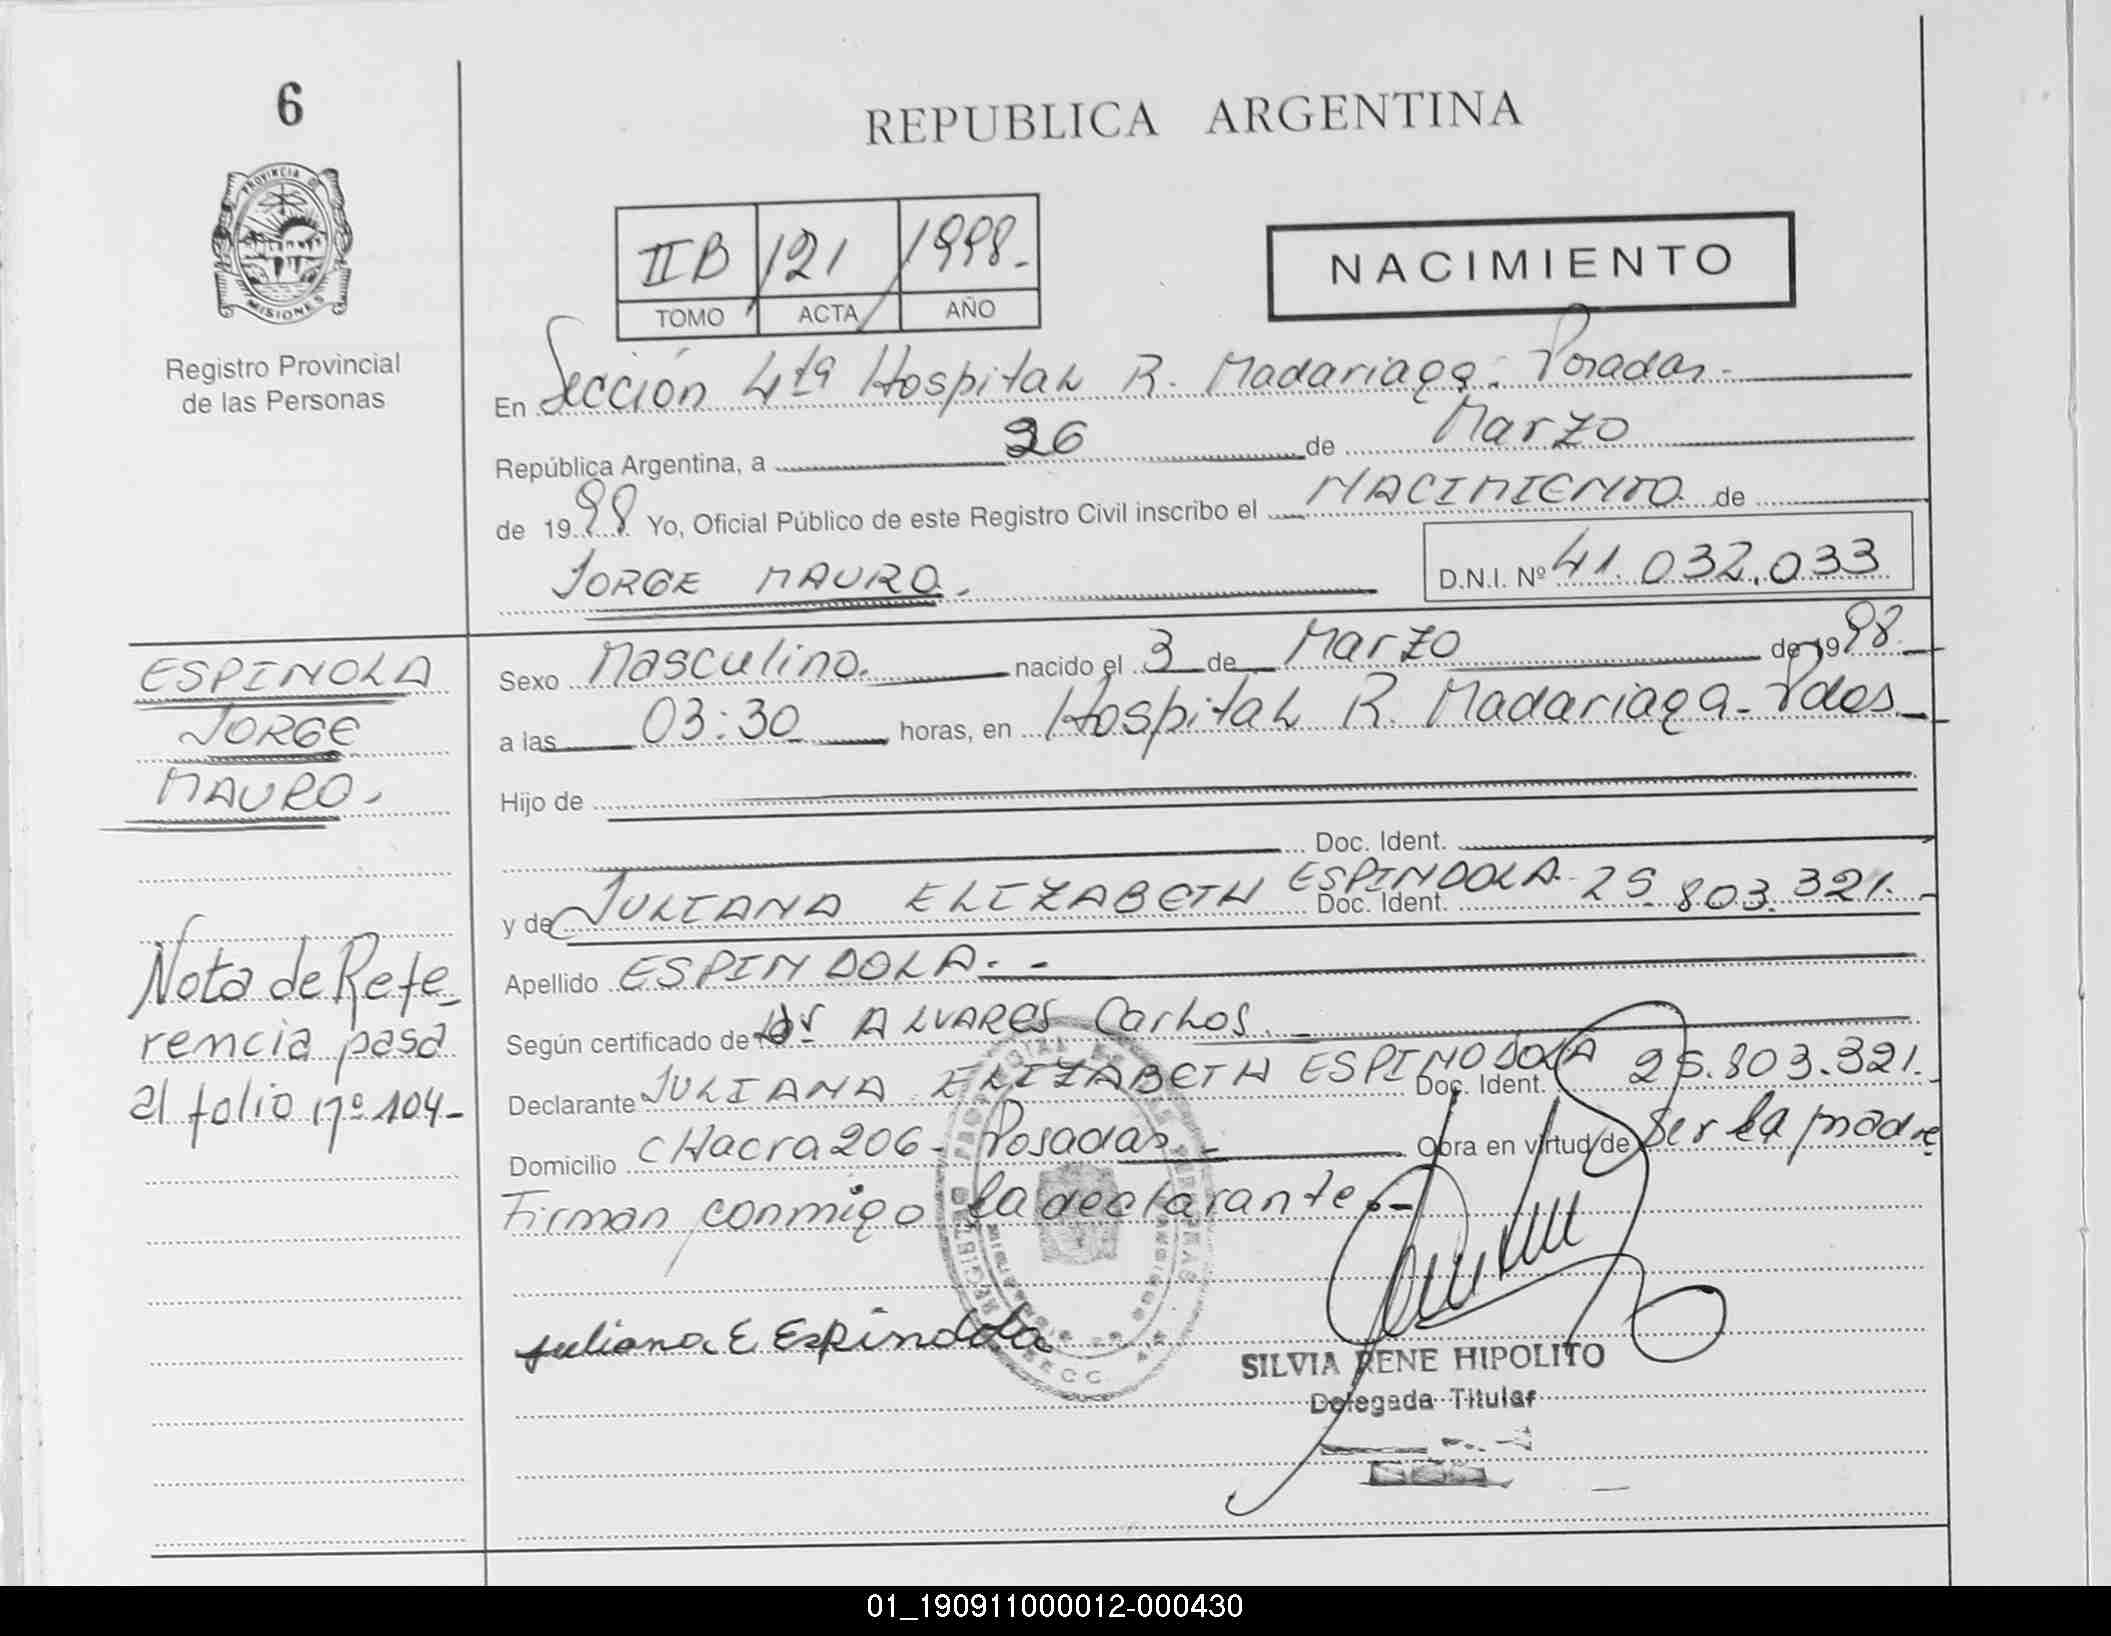 6
PROVINCIA DE
MISIONES
Registro Provincial
de las Personas
REPUBLICA ARGENTINA
II B 121 1998.-
TOMO ACTA AÑO
NACIMIENTO
En Sección 4ta Hospital R. Madariaga. Posadas.-
República Argentina, a 26 de Marzo
de 1998 Yo, Oficial Público de este Registro Civil inscribo el NACIMIENTO de
JORGE MAURO.
D.N.I. Nº 41.032.033
ESPINOLA
JORGE
MAURO.
Sexo Masculino. nacido el 3 de Marzo de 1998.
a las 03:30 horas, en Hospital R. Madariaga - Pdas
Hijo de
Doc. Ident.
y de JULIANA ELIZABETH ESPINDOLA. Doc. Ident. 25.803.321.-
Apellido ESPINDOLA.-
Según certificado de Dr ALVARES Carlos.
Declarante JULIANA ELIZABETH ESPINODOLA Doc. Ident. 25.803.321.
Domicilio CHacra 206 - Posadas Obra en virtud de Ser la madre
Firman conmigo la declarante.-
Nota de Refe-
rencia pasa
al folio nº 104-
Juliana E Espindola
SILVIA RENE HIPOLITO
Delegada Titular
01_190911000012-000430